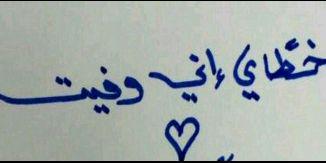 خطاي إني وفيت